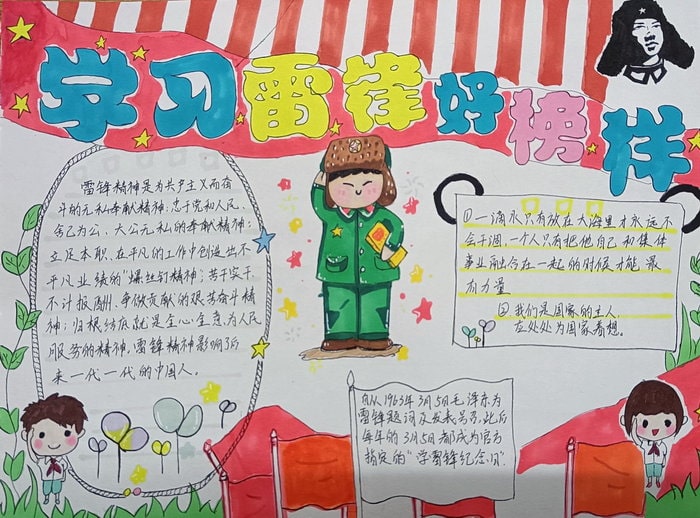 学习雷锋好榜样
雷锋精神是为共产主义而奋
斗的无私奉献精神；忠于党和人民、
舍己为公、大公无私的奉献精神；
立足本职、在平凡的工作中创造出不
平凡业绩的“螺丝钉精神；苦干实干、
不计报酬、争做贡献的艰苦奋斗精
神；归根结底就是全心全意为人民
服务的精神，雷锋精神影响了后
来一代一代的中国人。
①一滴水只有放在大海里才永远不
会干涸，一个人只有把他自己和集体
事业融合在一起的时候才能最
有力量
②我们是国家的主人，
应处处为国家着想。
1963年3月5日毛泽东为
雷锋题词及发表号召，此后
每年的3月5日都成为官方
指定的“学雷锋纪念日”